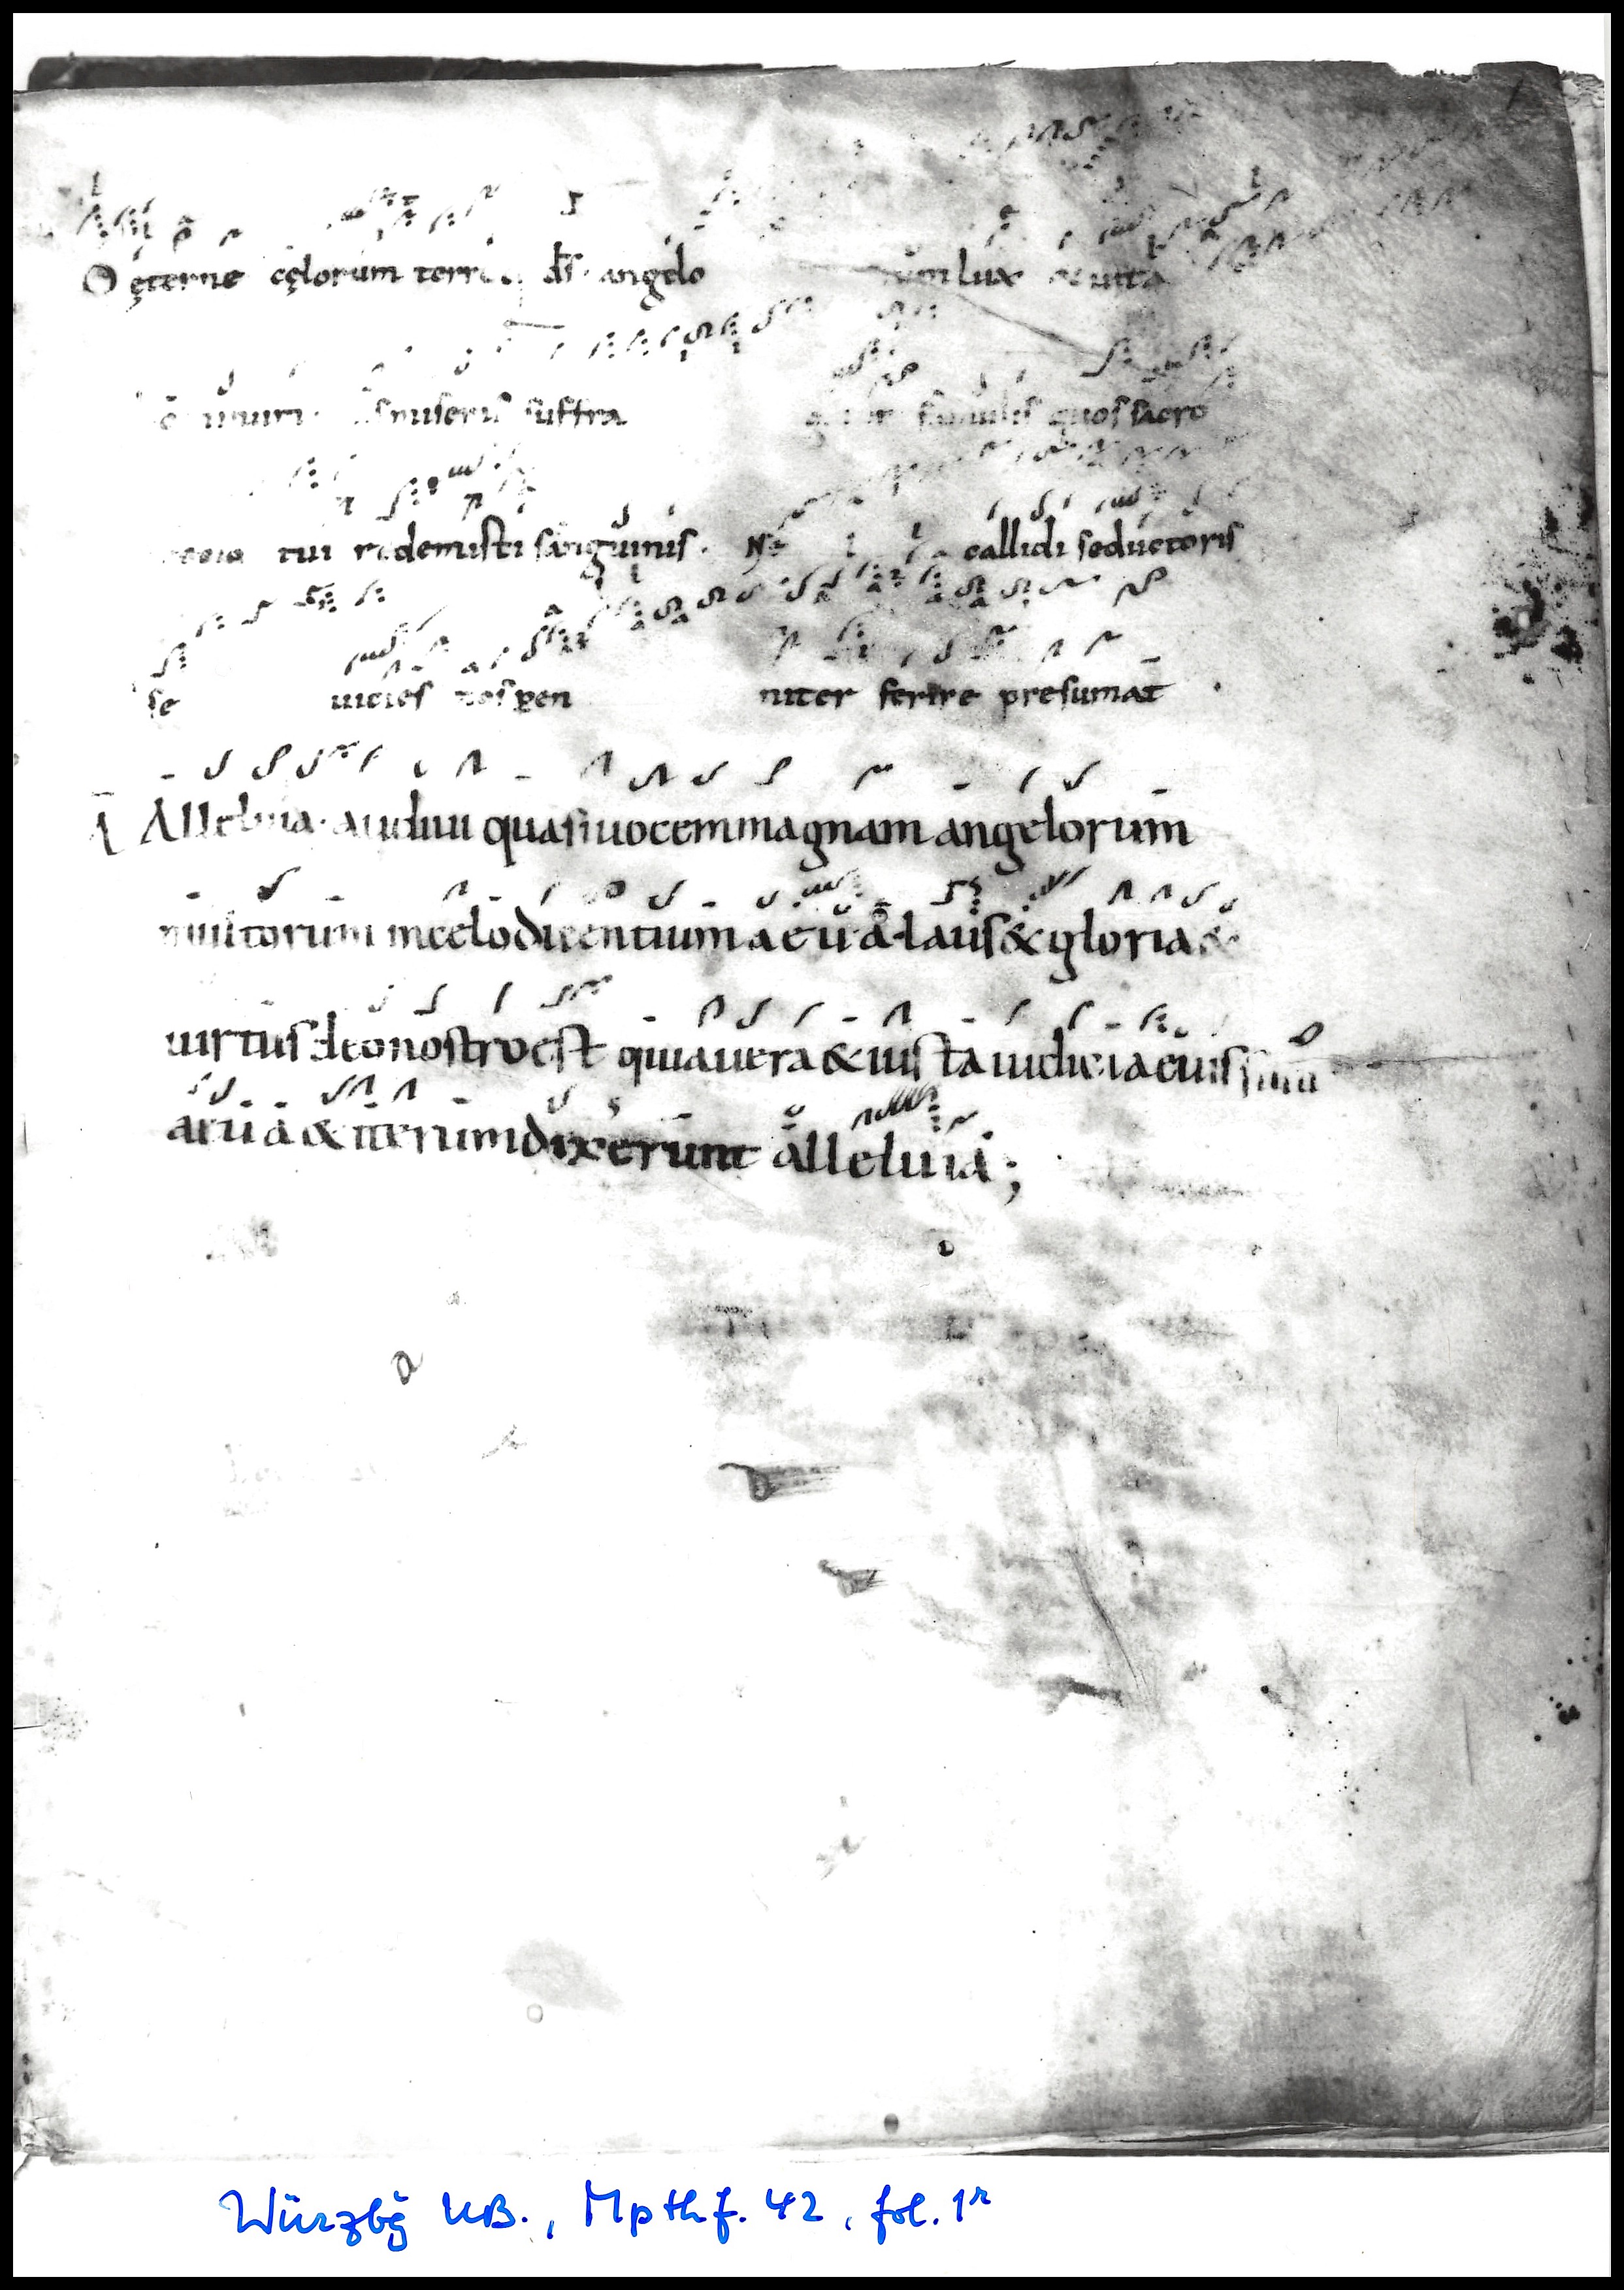 O ęterne cęlorum ds angelo um lux uita
miseris suffra famulis quos sacro
tui redemisti sanguinis. Ne callidi seductoris
se uicies pen niter ferire presumat.
A Alleluia. audiui quasi uocem magnam angelorum
multorum in celo dicentium aeuia. laus & gloria &
uirtus deo nostro est quia uera & iusta iudicia eius sunt
aeuia & iterum dixerunt alleluia;
Würzbg UB., Mpthf. 42, fol. 1r